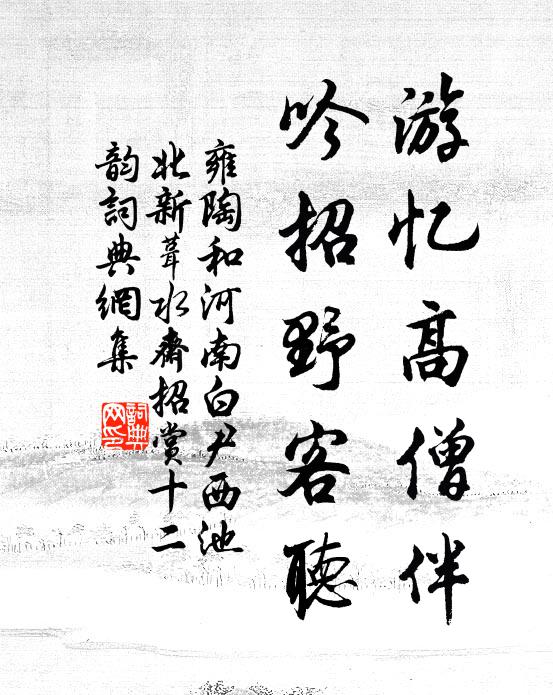 游忆高僧伴
吟招野客聽
雍陶和河南白尹西池
北新葺水齋招賞十二
韵詞典網集
詞典
网印